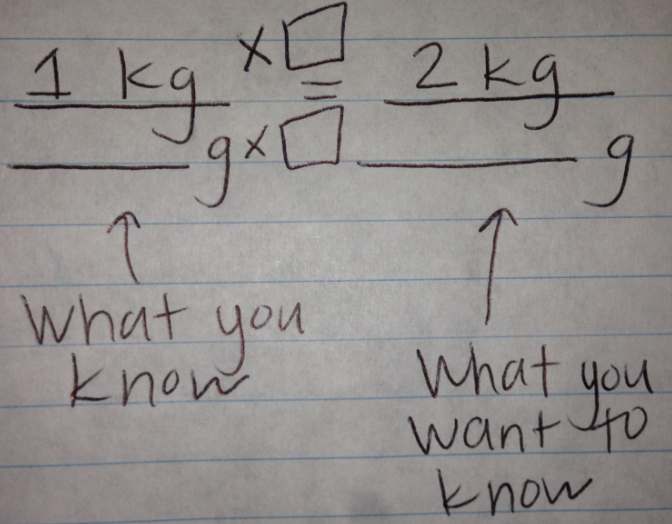 1 kg × □ = 2 kg
____ g × □ ____ g
↑ ↑
What you
know
What you
want to
know